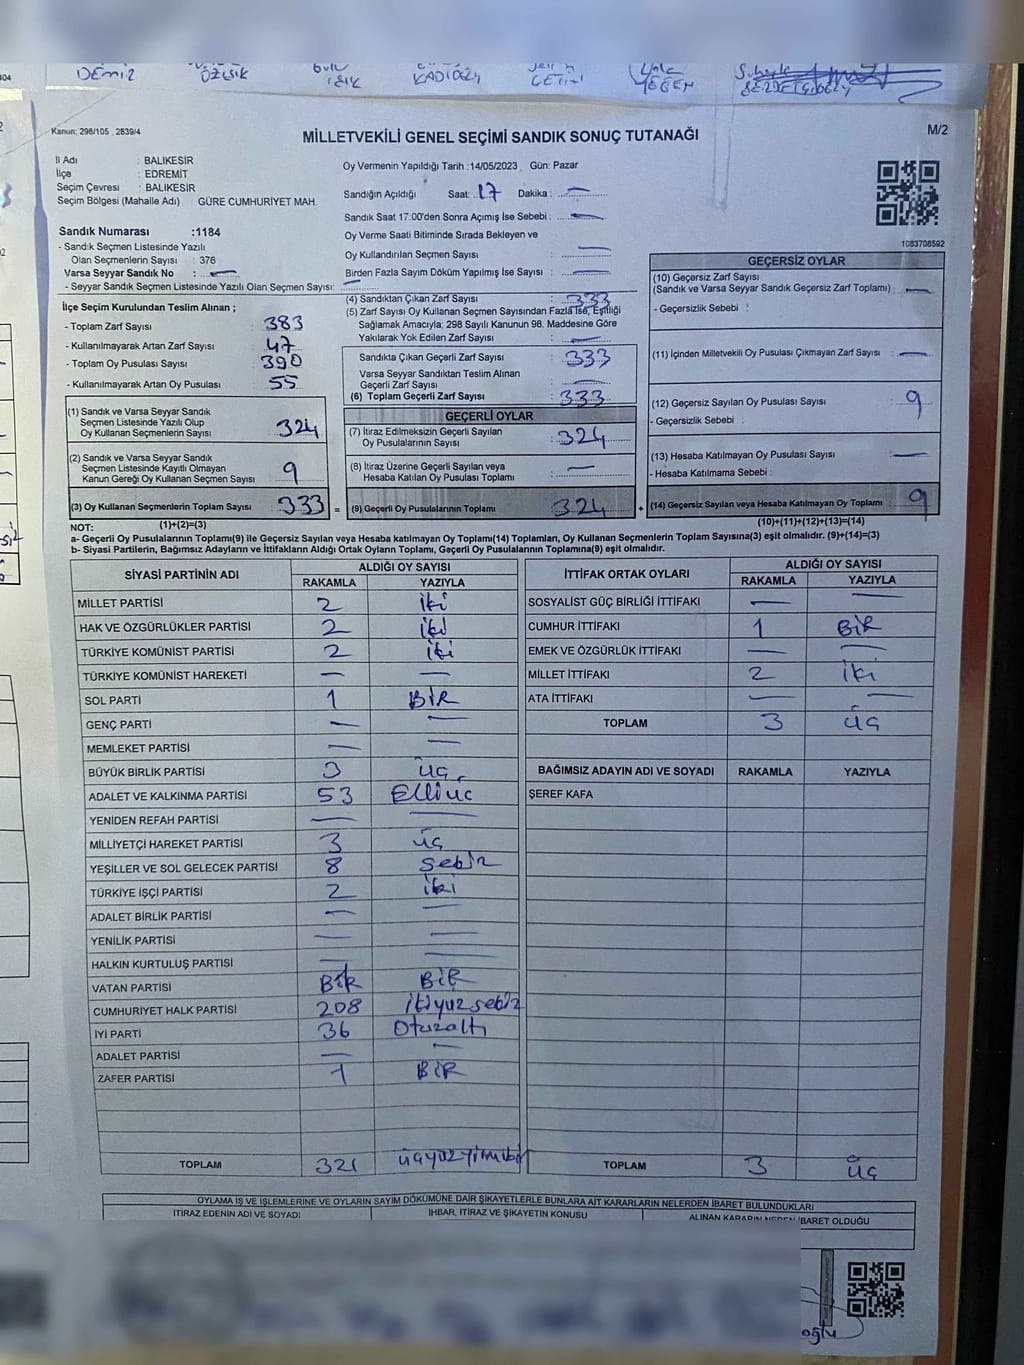 DEMİR ÖZIŞIK IŞIK KADIOĞLU ÇETİN YEĞEN
Kanun; 298/105 , 2839/4
MİLLETVEKİLİ GENEL SEÇİMİ SANDIK SONUÇ TUTANAĞI
M/2
İl Adı : BALIKESİR
İlçe : EDREMİT
Seçim Çevresi : BALIKESİR
Seçim Bölgesi (Mahalle Adı) GÜRE CUMHURİYET MAH.
Oy Vermenin Yapıldığı Tarih :14/05/2023 Gün: Pazar
Sandığın Açıldığı Saat: 17 Dakika : —
Sandık Saat 17:00'den Sonra Açımış İse Sebebi : —
Oy Verme Saati Bitiminde Sırada Bekleyen ve
Oy Kullandırılan Seçmen Sayısı : —
Birden Fazla Sayım Döküm Yapılmış İse Sayısı : —
1083708592
Sandık Numarası :1184
- Sandık Seçmen Listesinde Yazılı
Olan Seçmenlerin Sayısı : 376
Varsa Seyyar Sandık No : —
- Seyyar Sandık Seçmen Listesinde Yazılı Olan Seçmen Sayısı: —
İlçe Seçim Kurulundan Teslim Alınan ;
- Toplam Zarf Sayısı : 383
- Kullanılmayarak Artan Zarf Sayısı : 47
- Toplam Oy Pusulası Sayısı : 390
- Kullanılmayarak Artan Oy Pusulası : 55
(1) Sandık ve Varsa Seyyar Sandık
Seçmen Listesinde Yazılı Olup
Oy Kullanan Seçmenlerin Sayısı : 324
(2) Sandık ve Varsa Seyyar Sandık
Seçmen Listesinde Kayıtlı Olmayan
Kanun Gereği Oy Kullanan Seçmen Sayısı : 9
(3) Oy Kullanan Seçmenlerin Toplam Sayısı : 333
(1)+(2)=(3)
(4) Sandıktan Çıkan Zarf Sayısı : 333
(5) Zarf Sayısı Oy Kullanan Seçmen Sayısından Fazla İse, Eşitliği
Sağlamak Amacıyla; 298 Sayılı Kanunun 98. Maddesine Göre
Yakılarak Yok Edilen Zarf Sayısı : —
Sandıkta Çıkan Geçerli Zarf Sayısı : 333
Varsa Seyyar Sandıktan Teslim Alınan
Geçerli Zarf Sayısı : —
(6) Toplam Geçerli Zarf Sayısı : 333
GEÇERLİ OYLAR
(7) İtiraz Edilmeksizin Geçerli Sayılan
Oy Pusulalarının Sayısı : 324
(8) İtiraz Üzerine Geçerli Sayılan veya
Hesaba Katılan Oy Pusulası Toplamı : —
= (9) Geçerli Oy Pusulalarının Toplamı : 324 +
GEÇERSİZ OYLAR
(10) Geçersiz Zarf Sayısı
(Sandık ve Varsa Seyyar Sandık Geçersiz Zarf Toplamı) : —
- Geçersizlik Sebebi :
(11) İçinden Milletvekili Oy Pusulası Çıkmayan Zarf Sayısı : —
(12) Geçersiz Sayılan Oy Pusulası Sayısı : 9
- Geçersizlik Sebebi :
(13) Hesaba Katılmayan Oy Pusulası Sayısı : —
- Hesaba Katılmama Sebebi :
(14) Geçersiz Sayılan veya Hesaba Katılmayan Oy Toplamı : 9
(10)+(11)+(12)+(13)=(14)
NOT:
a- Geçerli Oy Pusulalarının Toplamı(9) ile Geçersiz Sayılan veya Hesaba katılmayan Oy Toplamı(14) Toplamları, Oy Kullanan Seçmenlerin Toplam Sayısına(3) eşit olmalıdır. (9)+(14)=(3)
b- Siyasi Partilerin, Bağımsız Adayların ve İttifakların Aldığı Ortak Oyların Toplamı, Geçerli Oy Pusulalarının Toplamına(9) eşit olmalıdır.
SİYASİ PARTİNİN ADI ALDIĞI OY SAYISI
RAKAMLA YAZIYLA
MİLLET PARTİSİ 2 iki
HAK VE ÖZGÜRLÜKLER PARTİSİ 2 iki
TÜRKİYE KOMÜNİST PARTİSİ 2 iki
TÜRKİYE KOMÜNİST HAREKETİ — —
SOL PARTİ 1 BİR
GENÇ PARTİ — —
MEMLEKET PARTİSİ — —
BÜYÜK BİRLİK PARTİSİ 3 üç
ADALET VE KALKINMA PARTİSİ 53 Elliüç
YENİDEN REFAH PARTİSİ — —
MİLLİYETÇİ HAREKET PARTİSİ 3 üç
YEŞİLLER VE SOL GELECEK PARTİSİ 8 sekiz
TÜRKİYE İŞÇİ PARTİSİ 2 iki
ADALET BİRLİK PARTİSİ — —
YENİLİK PARTİSİ — —
HALKIN KURTULUŞ PARTİSİ — —
VATAN PARTİSİ BİR BİR
CUMHURİYET HALK PARTİSİ 208 ikiyüzsekiz
İYİ PARTİ 36 Otuzaltı
ADALET PARTİSİ — —
ZAFER PARTİSİ 1 BİR
TOPLAM 321 üçyüzyirmibir
İTTİFAK ORTAK OYLARI ALDIĞI OY SAYISI
RAKAMLA YAZIYLA
SOSYALİST GÜÇ BİRLİĞİ İTTİFAKI — —
CUMHUR İTTİFAKI 1 BİR
EMEK VE ÖZGÜRLÜK İTTİFAKI — —
MİLLET İTTİFAKI 2 iki
ATA İTTİFAKI — —
TOPLAM 3 üç
BAĞIMSIZ ADAYIN ADI VE SOYADI RAKAMLA YAZIYLA
ŞEREF KAFA
TOPLAM 3 üç
OYLAMA İŞ VE İŞLEMLERİNE VE OYLARIN SAYIM DÖKÜMÜNE DAİR ŞİKAYETLERLE BUNLARA AİT KARARLARIN NELERDEN İBARET BULUNDUKLARI
İTİRAZ EDENİN ADI VE SOYADI İHBAR, İTİRAZ VE ŞİKAYETİN KONUSU ALINAN KARARIN NEDEN İBARET OLDUĞU
oğlu